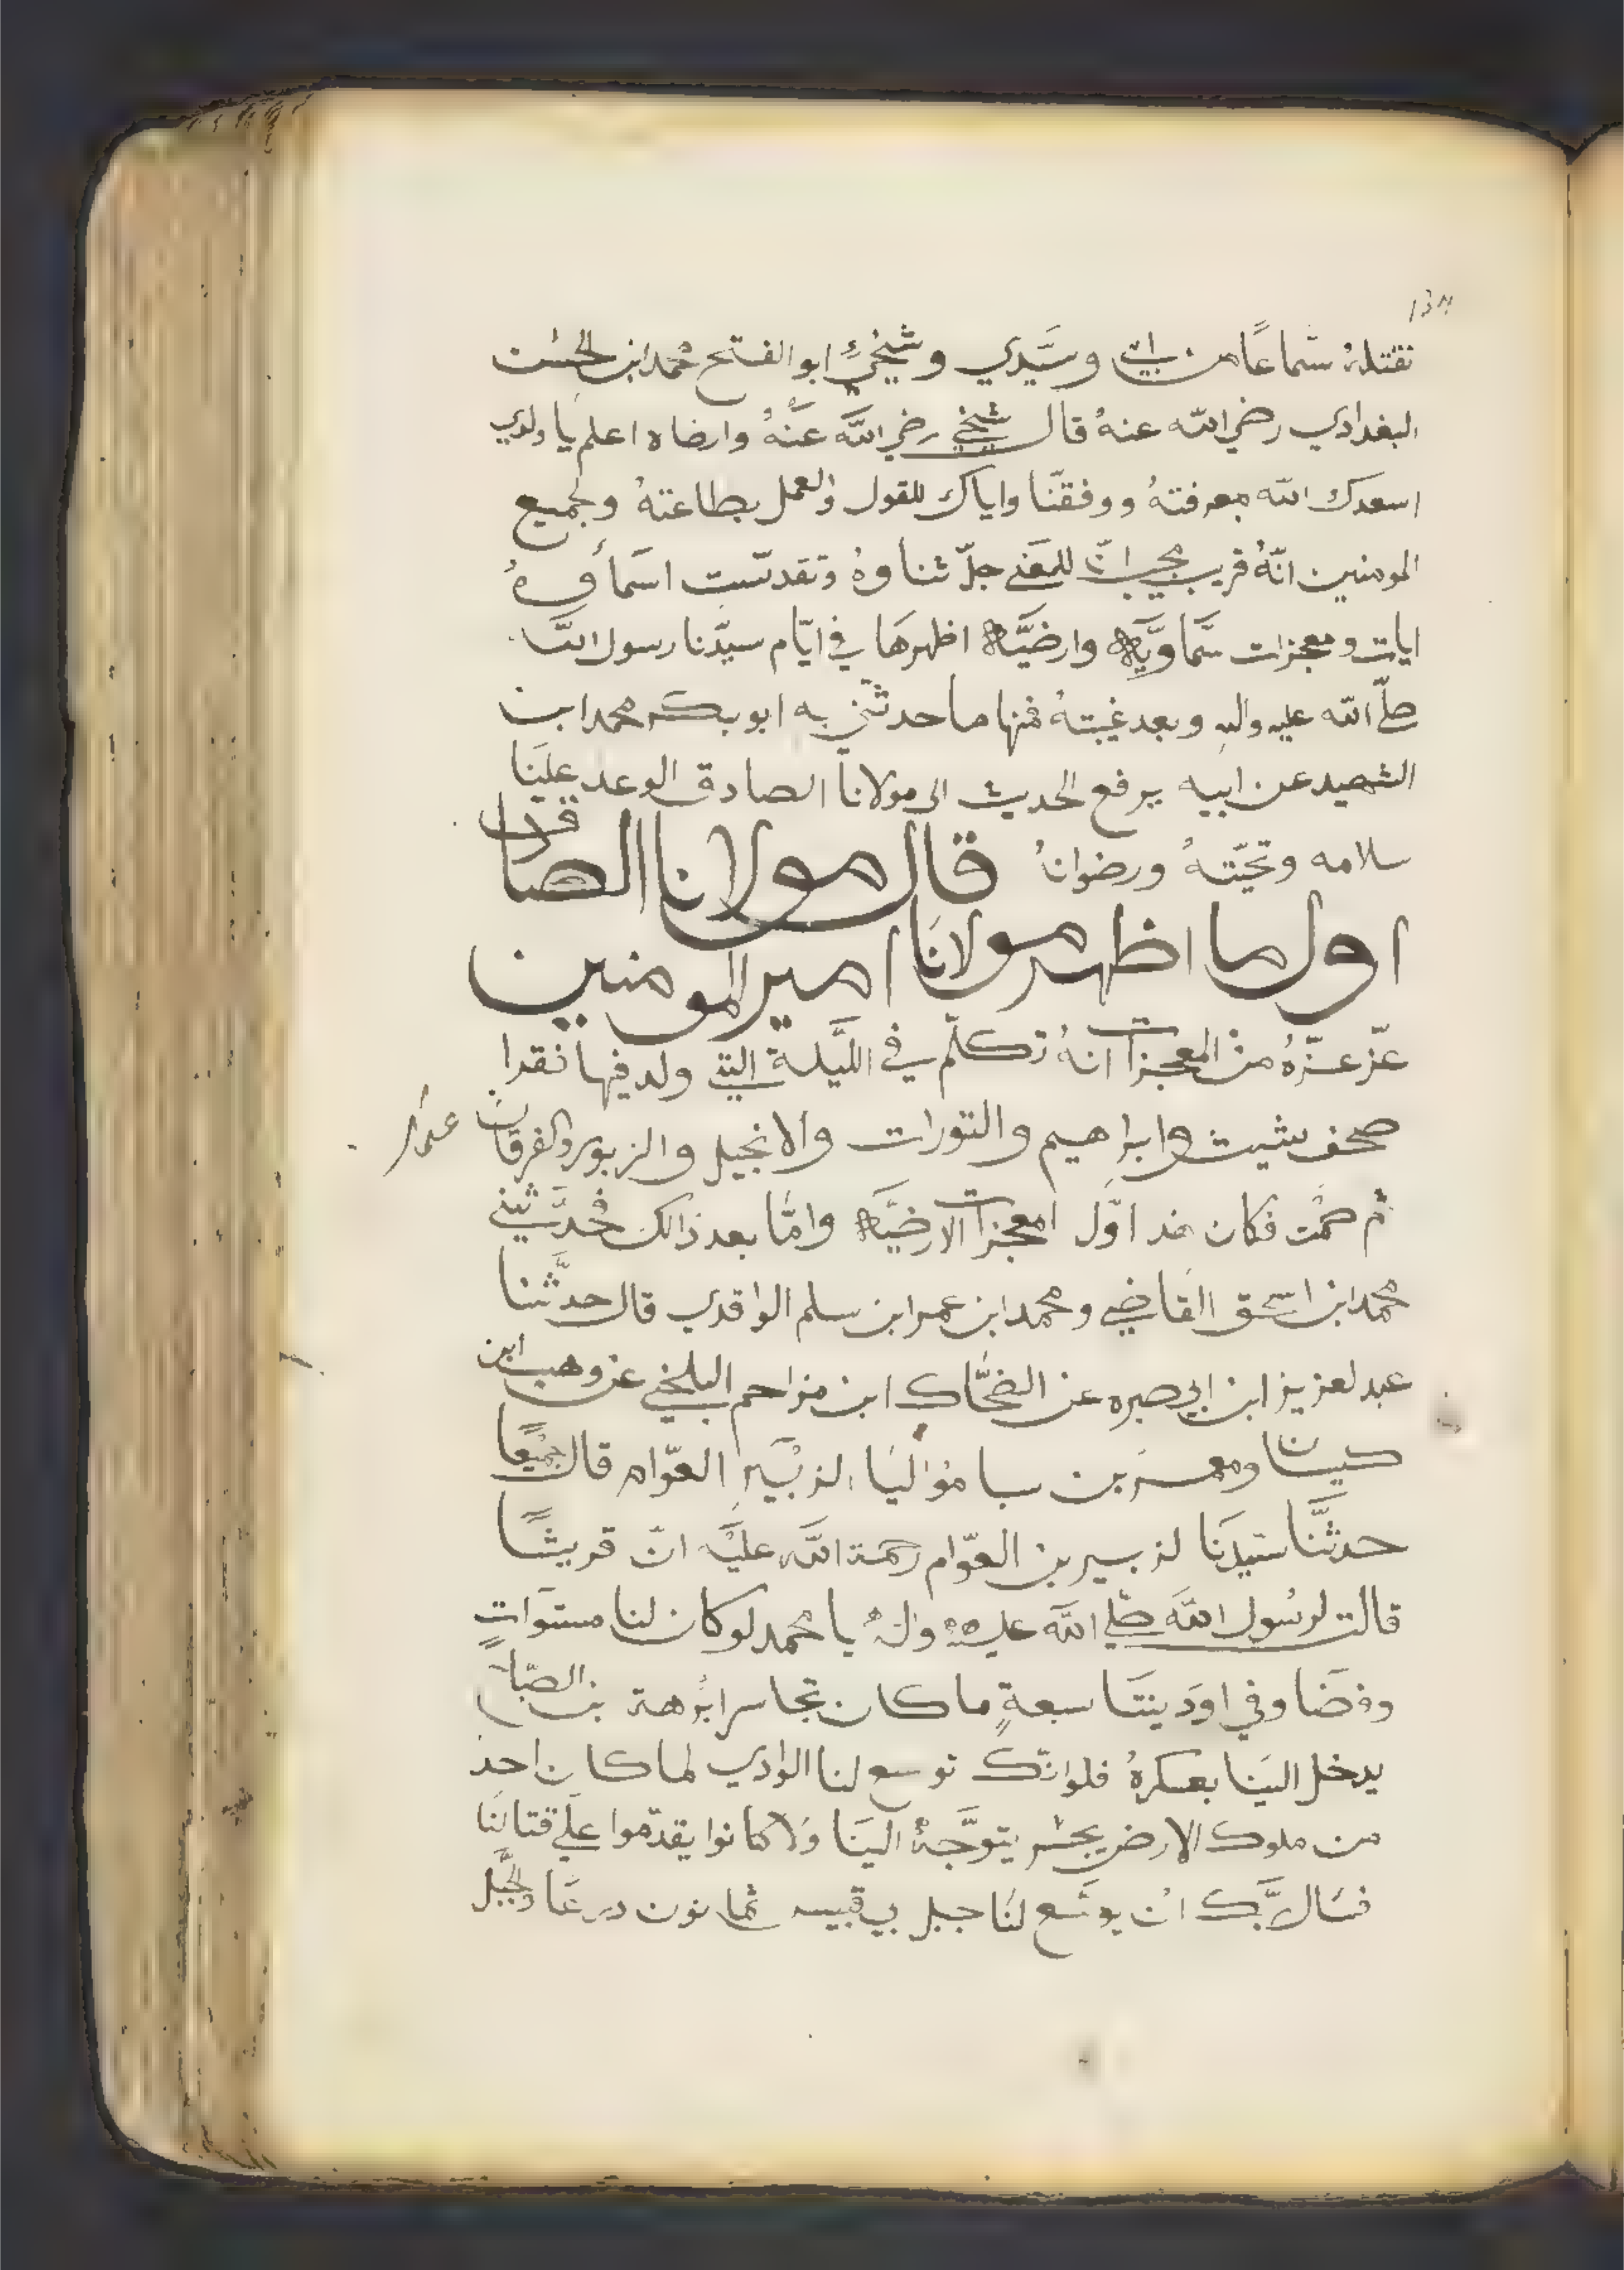 نقتله شماعًا من ابي وسَيّدي وشيخي ابو الفتح محمد ابن الحسن
البغدادي رضي الله عنهُ قال شيخي رضي الله عَنْهُ وارضاه اعلم يا ولدي
اسعدك الله بمعرفتهُ ووفقنا واياك للقول والعمل بطاعتهُ وجميع
المومنين انّهُ قريب مجيب انّ للمعَنى جلّ ثناوهُ وتقدسّت اسمَأوهُ
ايات ومعجزات سَّمَاويَّه وارضيَّه اظهرهَا في ايّام سيدّنا رسول الله
صلّى الله عليه واله وبعد غيبتهُ فمنها ما حدثني به ابو بكر محمد ابن
الشهيد عن ابيه يرفع الحديث الى مولانا الصادق الوعد علينَا
سلامه وتحيّتهُ ورضوانهُ قال مولانا الصادق
اول ما اظهر مولانا امير المومنين
عزّ عزّهُ من المعجزات انهُ تكلّم في اللَّيلة التي ولد فيها فقرا
صحف شيث وابراهيم والتورات والانجيل والزبور والفرقان
ثم صمت فكان هذ اوَّل امعجزات الارضيَّه وامَّا بعد ذالك فحدَّثني
محمد ابن اسحق القاضي ومحمد ابن عمر ابن سلم الواقدي قال حدَّثنا
عبد لعزيز ابن ابي صبره عن الضحَّاك ابن مزاحم البلخي عن وهب ابن
ومعمر بن سبا مَوْاليَا الزبَيْر العوّام قال جميْعًا
حدثَّنا سَيِّدنَا لزبير بن العوّام رحمة اللّه عليْه انّ قريشًا
قالت لرسُول اللَّه صلى اللَّه عليه والهُ يا محمد لو كان لنا مستوَاتٍ
وفضَا وفي اوَديتنَا سبعةٍ ما كان تجاسر ابُرهة بن الصبّاح
يدخل الينَا بعسكرهُ فلو انّك توسع لنا الوادي لما كان احد
من ملوك الارض يجسْر يتوَجَّهُ الينَا وَلا كانوا يقدّموا علَى قتالنَا
فسَال ربَّك انْ يوسَّع لنَا جبل بي قبيس ثمانون درعًا والجَبل